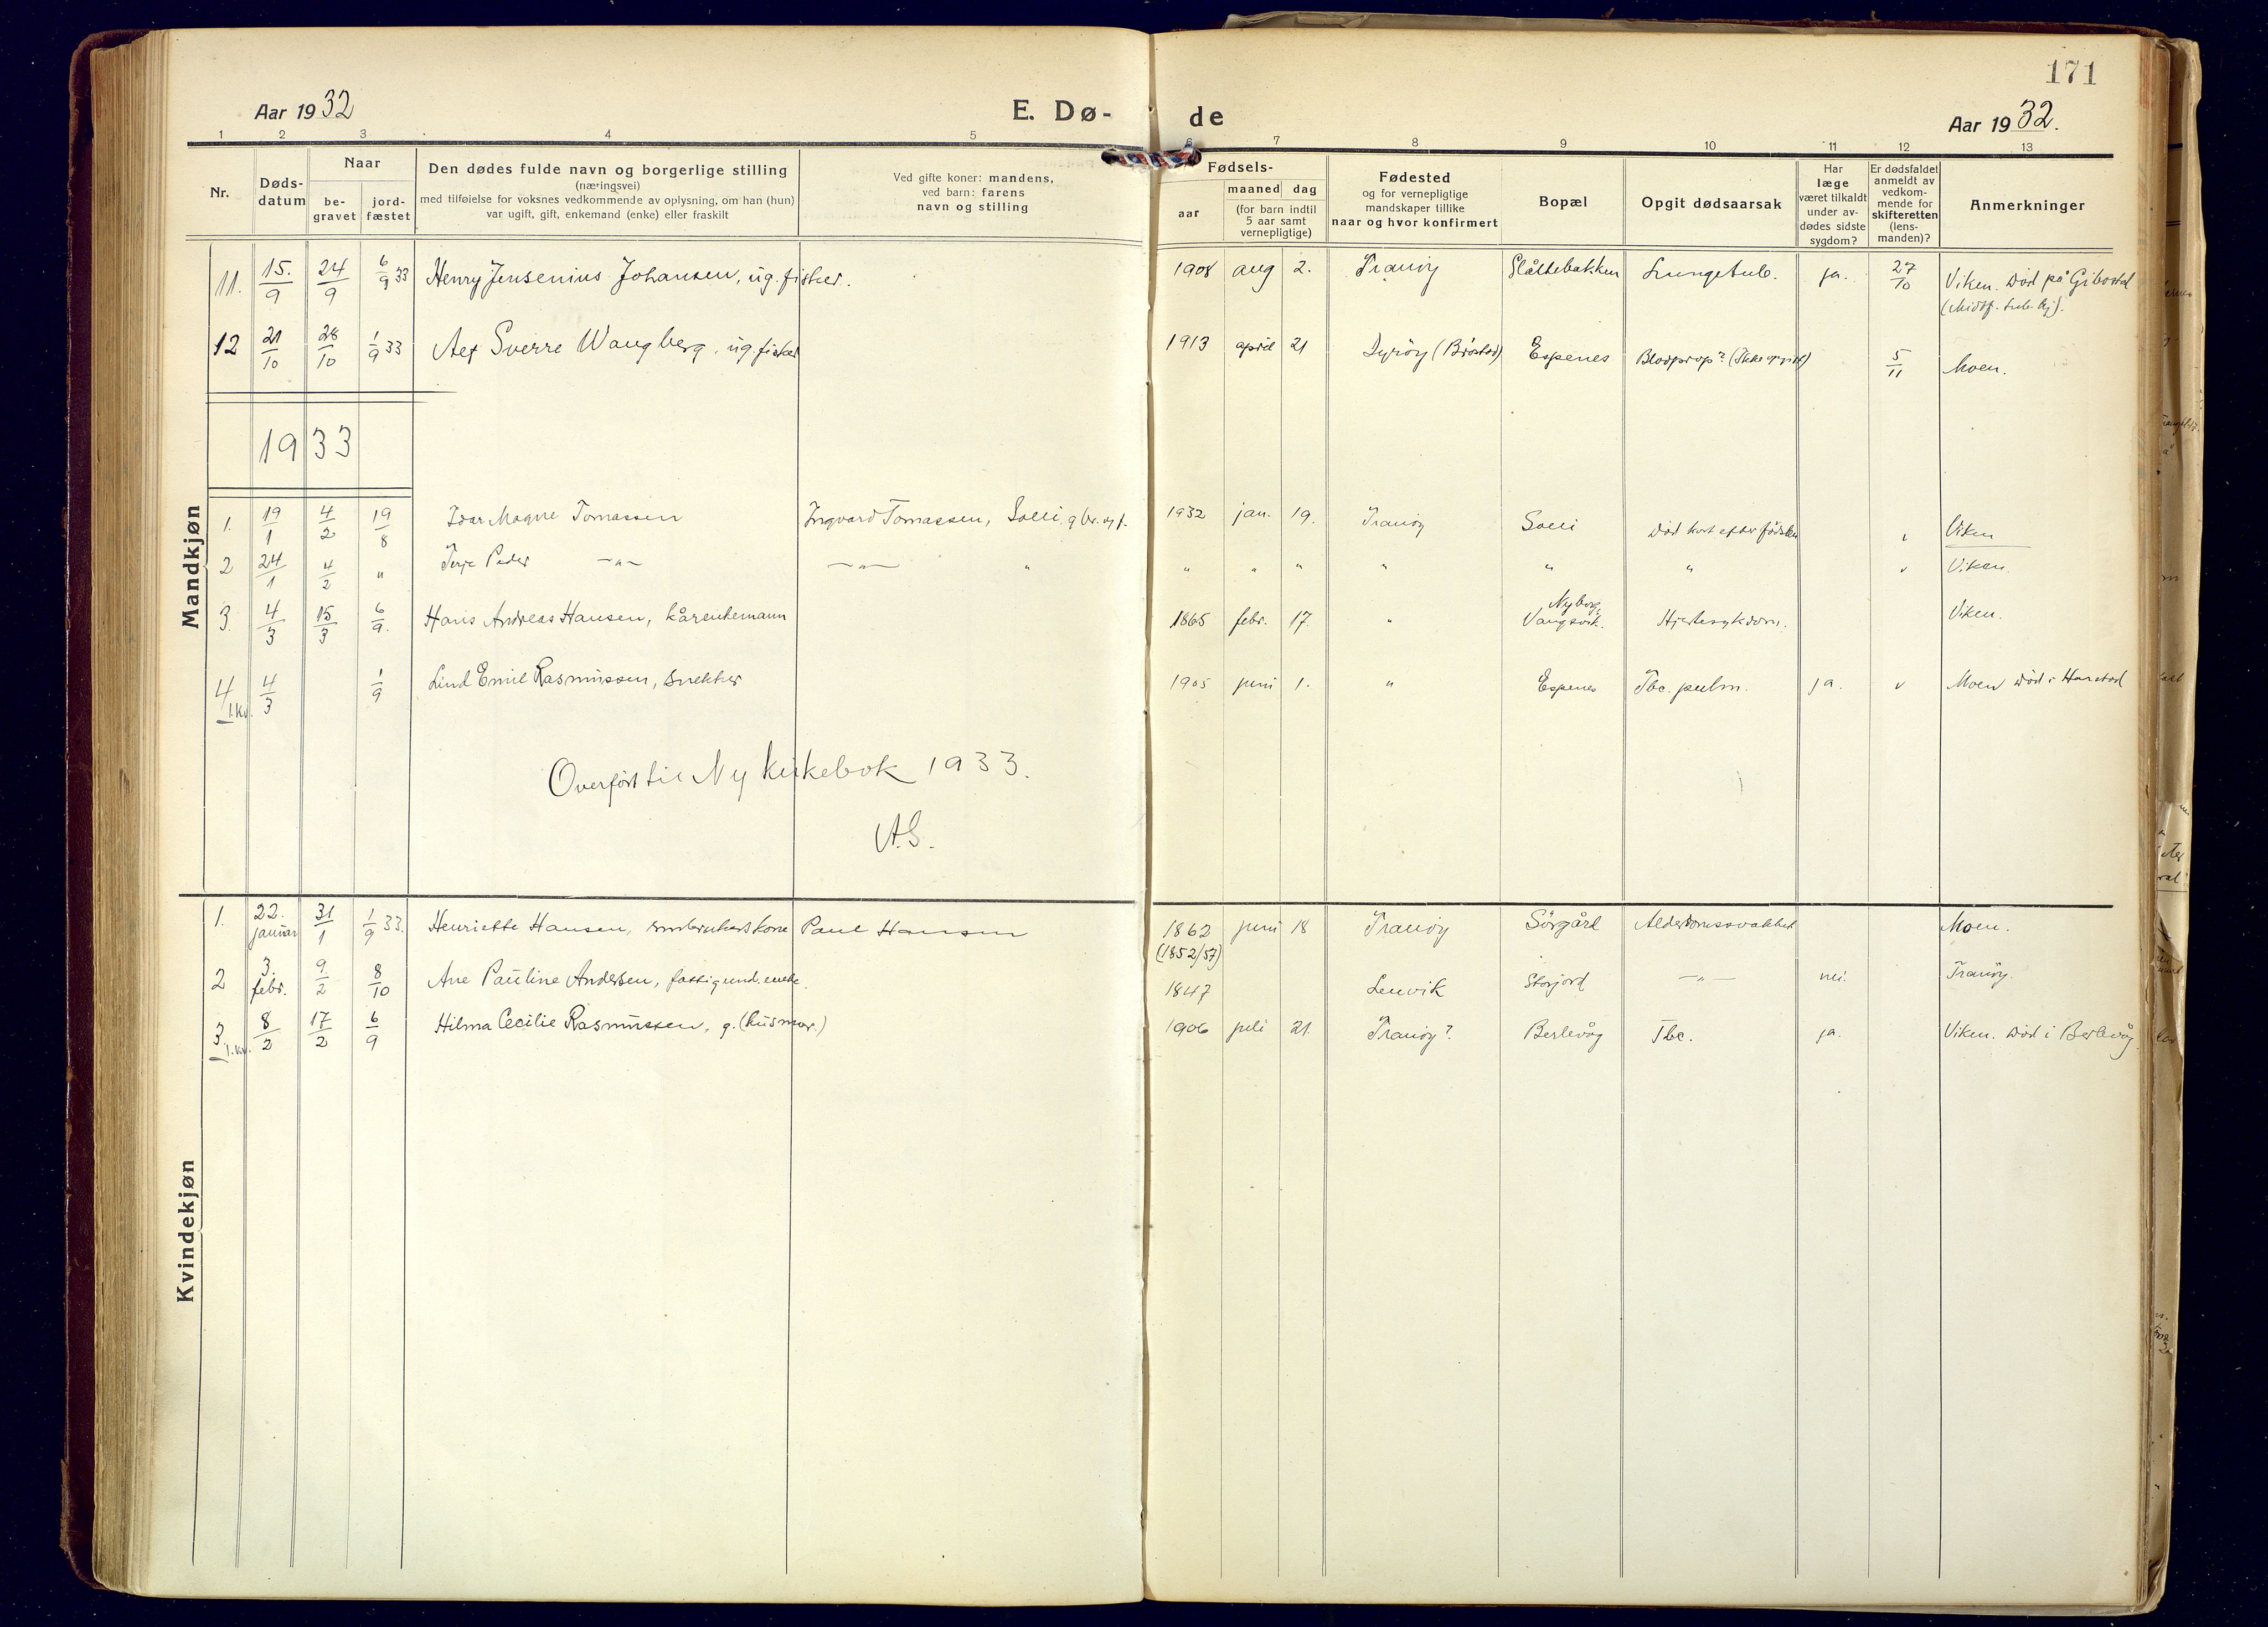 171
Aar 1932
E. Dø-
de
Aar 1932.
1 2 3 4 5 6 7 8 9 10 11 12 13
Nr.
Døds-
datum
Naar
be-
gravet
jord-
fæstet
Den dødes fulde navn og borgerlige stilling
(næringsvei)
med tilføielse for voksnes vedkommende av oplysning, om han (hun)
var ugift, gift, enkemand (enke) eller fraskilt
Ved gifte koner: mandens,
ved barn: farens
navn og stilling
Fødsels-
aar
maaned dag
(for barn indtil
5 aar samt
vernepligtige)
Fødested
og for vernepligtige
mandskaper tillike
naar og hvor konfirmert
Bopæl
Opgit dødsaarsak
Har
læge
været tilkaldt
under av-
dødes sidste
sygdom?
Er dødsfaldet
anmeldt av
vedkom-
mende for
skifteretten
(lens-
manden)?
Anmerkninger
Mandkjøn
11. 15./9 24/9 6/9 33 Henry Jensenius Johansen, ug. fisker. 1908 aug 2. Tranöy Slåttebakken Lungetub. ja. 27/10 Viken. Død på Gibostad
(Midtf. tub. hj).
12 21/10 28/10 1/9 33 Sverre Wangberg, ug. fisker 1913 april 21 Dyröy (Bröstad) Espenes Blodprop? (Ikke opgitt) 5/11 Moen.
1933
1. 19/1 4/2 19/8 Ivar Magne Tomassen Ingvard Tomassen, Solli, gbr. og f. 1932 jan. 19. Tranöy Solli Död kort efter födselen v Viken
2 24/1 4/2 " Terje Peder —"— —"— " " " " " " " v Viken.
3. 4/3 15/3 6/9. Hans Andreas Hansen, kårenkemann 1865 febr. 17. " Nyborg, Vangsvik. Hjertesykdom. Viken.
4 4/3 1/9 Lind Emil Rasmussen, snekker 1905 juni 1. " Espenes Tbc. pulm. ja. v Moen Död i Harstad
1.kv.
Overfört til Ny kirkebok 1933.
A.S.
Kvindekjøn
1. 22. januar 31/1 1/9 33. Henriette Hansen, småbrukerskone Paul Hansen 1862 juni 18 Tranöy Sörgård Alderdomssvakhet Moen.
(1852/57)
2 3. febr. 9./2 8/10 Ane Pauline Andersen, fattigund. enke. 1847 Lenvik Storjord —"— nei. Tranöy.
3. 8/2 17/2 6/9 Hilma Cecilie Rasmussen, g. (husmor) 1906 juli 21. Tranöy? Berlevåg Tbc. ja. Viken. Död i Berlevåg.
1.kv.